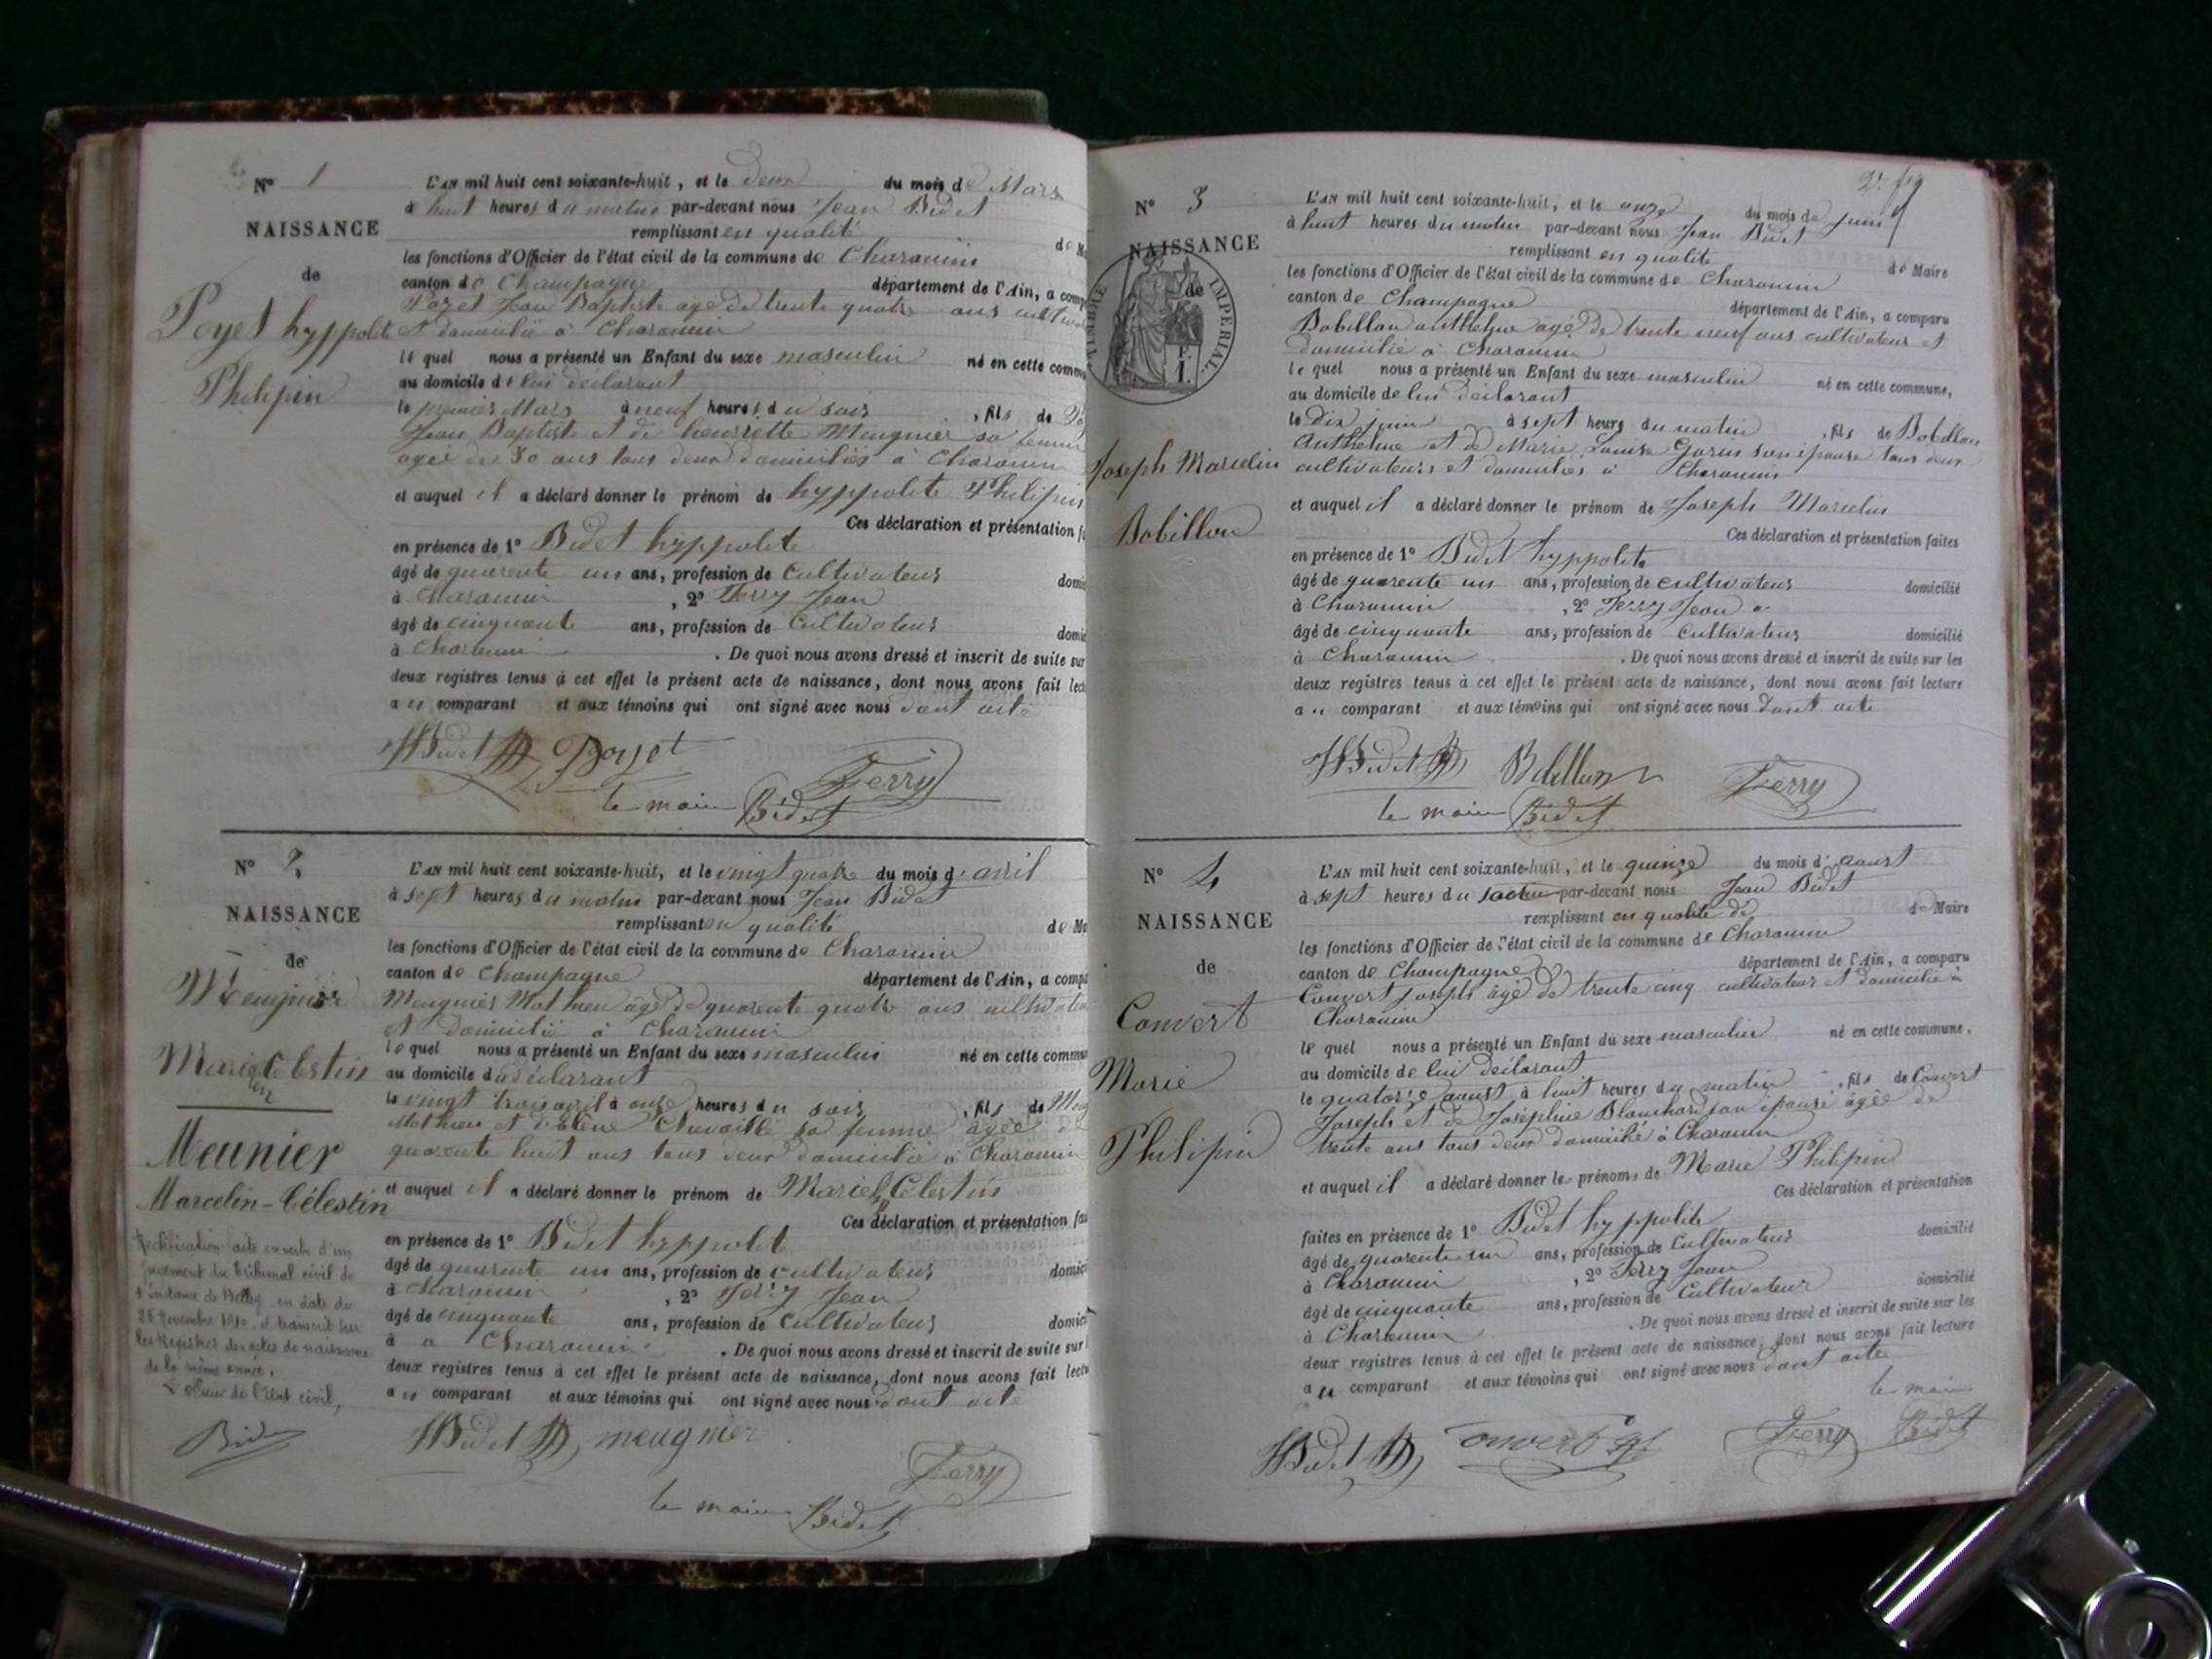 N° 1
NAISSANCE
de
Poyet hyppolite
Philipin
L'AN mil huit cent soixante-huit, et le deux du mois de Mars
à huit heures du matin par-devant nous Jean Bidet
remplissant en qualité de M
les fonctions d'Officier de l'état civil de la commune de Charancin
canton de Champagne département de l'Ain, a comp
Poyet Jean Baptiste agé de trente quatre ans cultiva
et domicilié à Charancin
le quel nous a présenté un Enfant du sexe masculin né en cette commu
au domicile de lui déclarant
le premier Mars à neuf heures du soir, fils de Po
Jean Baptiste et de henriette Meugnier sa femme
agée de 30 ans tous deux domiciliés à Charancin
et auquel il a déclaré donner le prénom de hyppolite Philipin
Ces déclaration et présentation f
en présence de 1° Bidet hyppolite
âgé de quarente un ans, profession de Cultivateur domi
à Charancin, 2° Ferry Jean
âgé de cinquante ans, profession de Cultivateur domic
à Charancin. De quoi nous avons dressé et inscrit de suite sur
deux registres tenus à cet effet le présent acte de naissance, dont nous avons fait lect
au comparant et aux témoins qui ont signé avec nous dont acte
HBidet Poyet
Ferry
le maire Bidet
N° 2
NAISSANCE
de
Meugnier
Marie Célestin
lin
Meunier
Marcelin-Célestin
Rectification faite en vertu d'un
jugement du Tribunal civil de
1e instance de Belley en date du
25 Novembre et transcrit sur
les Registres des actes de naissance
de la même année.
L'officier de l'Etat civil,
Bidet
L'AN mil huit cent soixante-huit, et le vingt quatre du mois d'avril
à sept heures du matin par-devant nous Jean Bidet
remplissant en qualité de Ma
les fonctions d'Officier de l'état civil de la commune de Charancin
canton de Champagne département de l'Ain, a compa
Meugnier Mathieu âgé de quarente quatre ans cultivate
et domicilié à Charancin
le quel nous a présenté un Enfant du sexe masculin né en cette commu
au domicile du déclarant
le vingt trois avril à onze heures du soir, fils de Meug
Mathieu et d'Elène sa femme âgée de
quarente huit ans tous deux domicilié à Charancin
et auquel il a déclaré donner le prénom de Marie Célestin
Ces déclaration et présentation fai
en présence de 1° Bidet hyppolit
âgé de quarente un ans, profession de cultivateur domici
à Charancin, 2° Ferry Jean
âgé de cinquante ans, profession de Cultivateur domici
à a Charancin. De quoi nous avons dressé et inscrit de suite sur l
deux registres tenus à cet effet le présent acte de naissance, dont nous avons fait lectu
au comparant et aux témoins qui ont signé avec nous dont acte
HBidet meugnier
Ferry
le maire Bidet
N° 3
NAISSANCE
de
TIMBRE IMPERIAL
Joseph Marcelin
Bobillon
L'AN mil huit cent soixante-huit, et le onze du mois de juin
à huit heures du matin par-devant nous Jean Bidet
remplissant en qualité de Maire
les fonctions d'Officier de l'état civil de la commune de Charancin
canton de Champagne département de l'Ain, a comparu
Bobillon anthelme agé de trente neuf ans cultivateur et
domicilié à Charancin
le quel nous a présenté un Enfant du sexe masculin né en cette commune,
au domicile de lui déclarant
le Dix juin à sept heures du matin, fils de Bobillon
Anthelme et de Marie Louise Gorin son épouse tous deux
cultivateurs et domiciliés à Charancin
et auquel il a déclaré donner le prénom de Joseph Marcelin
Ces déclaration et présentation faites
en présence de 1° Bidet hyppolite
âgé de quarente un ans, profession de cultivateur domicilié
à Charancin, 2° Ferry Jean a
âgé de cinquante ans, profession de cultivateur domicilié
à Charancin. De quoi nous avons dressé et inscrit de suite sur les
deux registres tenus à cet effet le présent acte de naissance, dont nous avons fait lecture
au comparant et aux témoins qui ont signé avec nous dont acte
HBidet Bobillon Ferry
le maire Bidet
N° 4
NAISSANCE
de
Convert
Marie
Philipin
L'AN mil huit cent soixante-huit, et le quinze du mois d'aoust
à sept heures du matin par-devant nous Jean Bidet
remplissant en qualité de de Maire
les fonctions d'Officier de l'état civil de la commune de Charancin
canton de Champagne département de l'Ain, a comparu
Convert joseph âgé de trente cinq cultivateur et domicilié à
Charancin
le quel nous a présenté un Enfant du sexe masculin né en cette commune,
au domicile de lui déclarant
le quatorze aoust à huit heures du matin, fils de Convert
Joseph et de Joséphine Blanchard son épouse âgée de
trente ans tous deux domicilié à Charancin
et auquel il a déclaré donner les prénoms de Marie Philipin
Ces déclaration et présentation
faites en présence de 1° Bidet hyppolite domicilié
âgé de quarente un ans, profession de Cultivateur
à Charancin, 2° Ferry Jean
âgé de cinquante ans, profession de Cultivateur domicilié
à Charancin. De quoi nous avons dressé et inscrit de suite sur les
deux registres tenus à cet effet le présent acte de naissance, dont nous avons fait lecture
au comparant et aux témoins qui ont signé avec nous dont acte
le maire
HBidet Convert Ferry Bidet